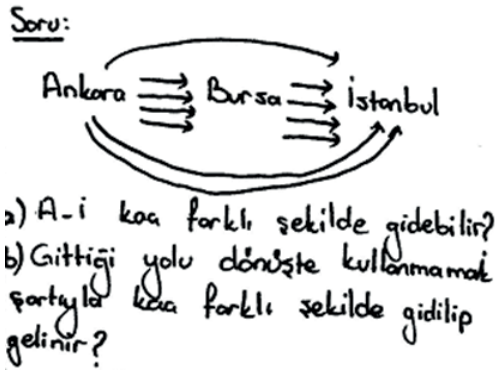 Soru:
Ankara Bursa İstanbul
a) A-İ kaç farklı şekilde gidebilir?
b) Gittiği yolu dönüşte kullanmamak
şartıyla kaç farklı şekilde gidilip
gelinir?